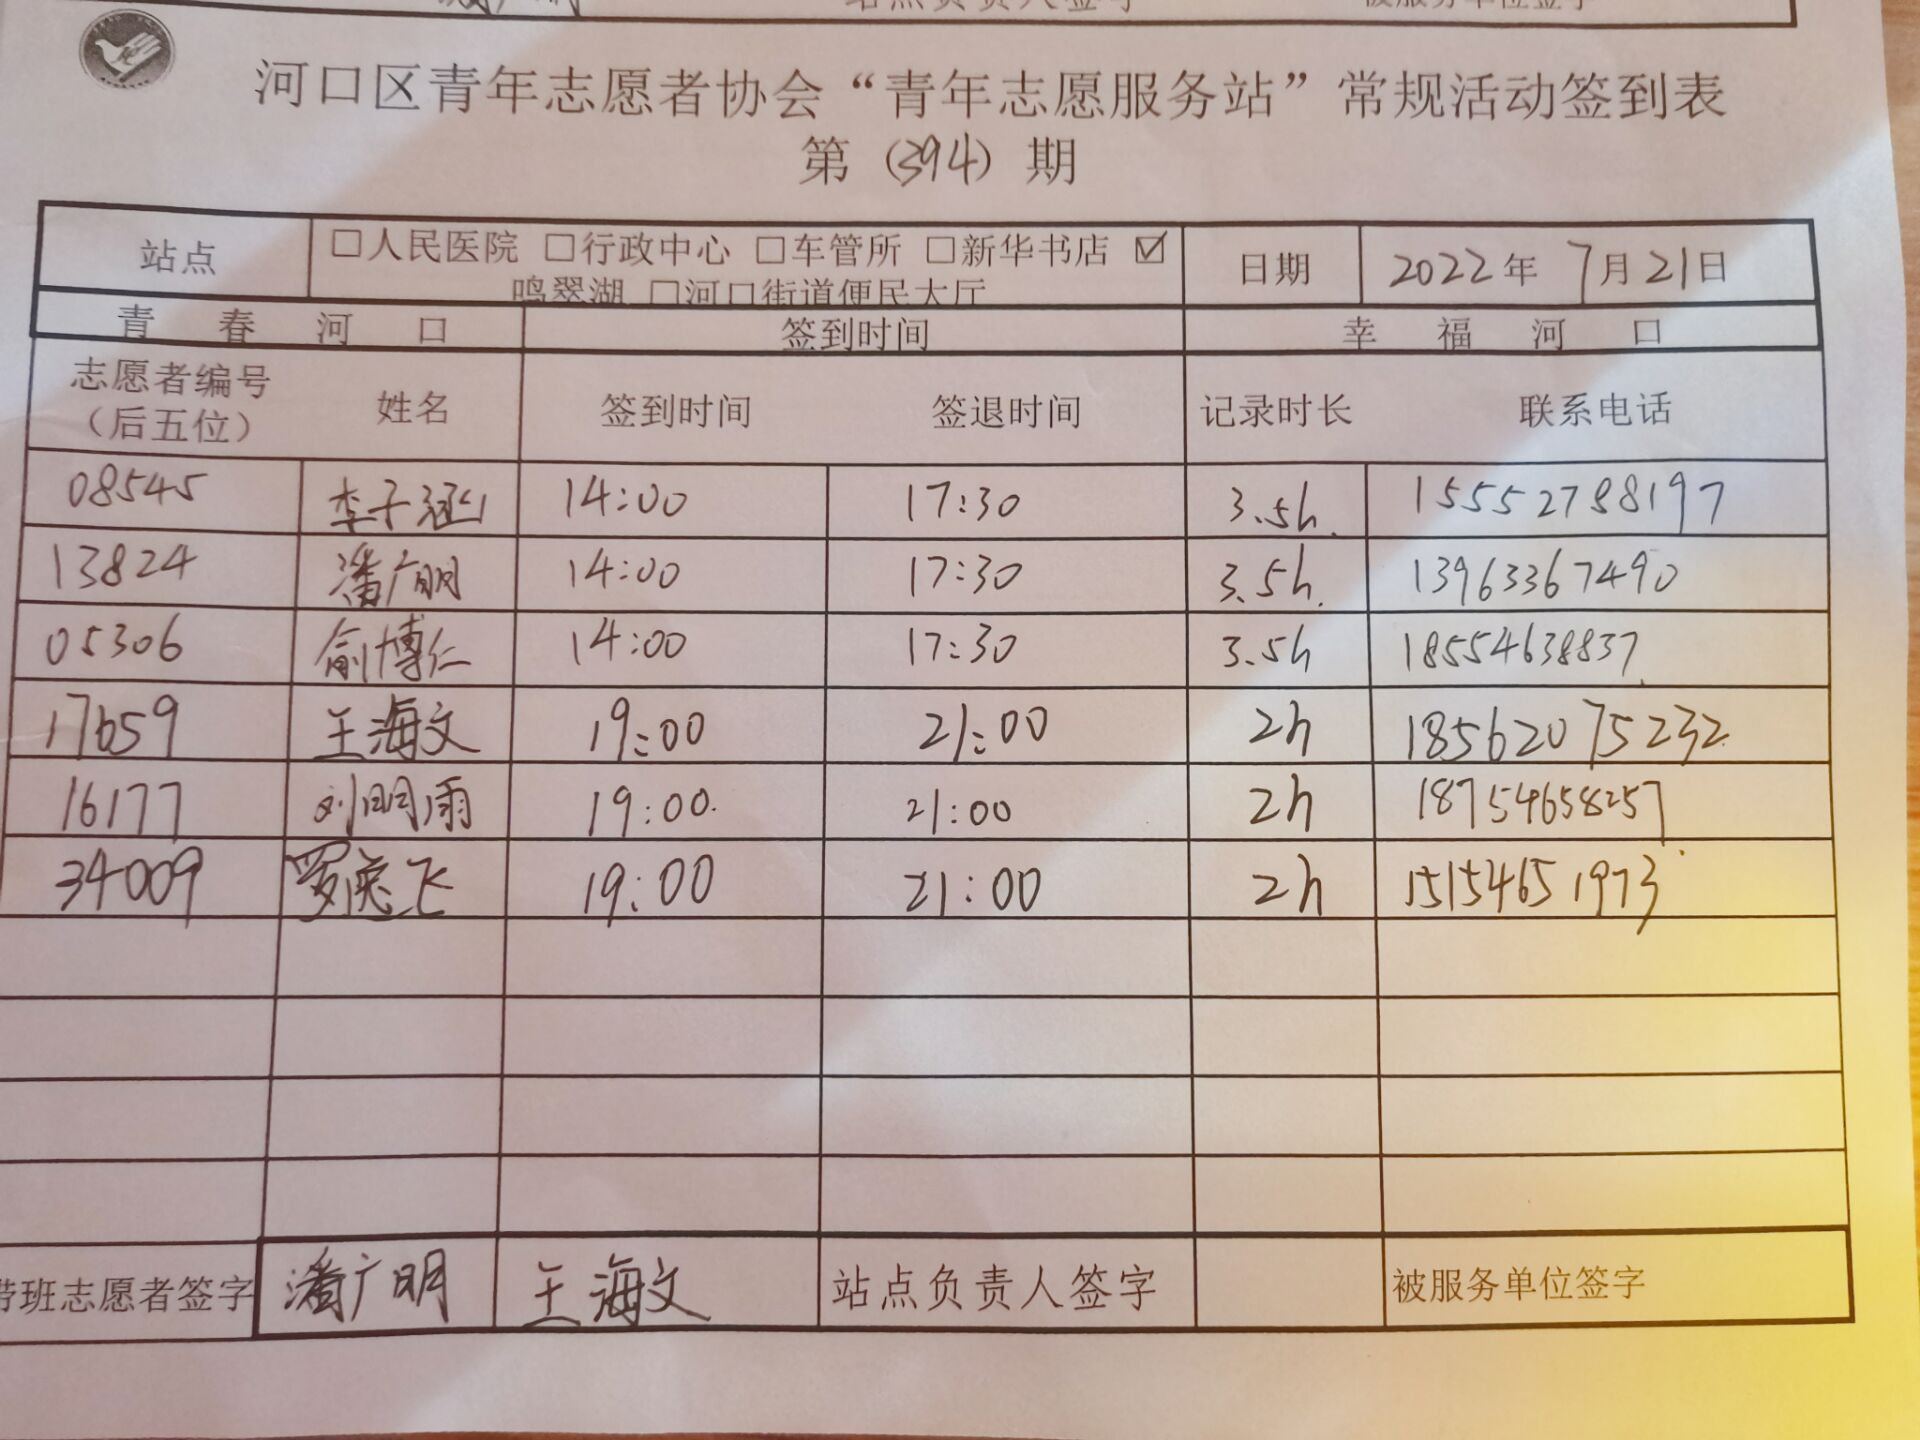 站点负责人签字 被服务单位签字
河口区青年志愿者协会“青年志愿服务站”常规活动签到表
第（394）期
站点 □人民医院 □行政中心 □车管所 □新华书店 ☑ 日期 2022年7月21日
鸣翠湖 □河口街道便民大厅
青春河口 签到时间 幸福河口
志愿者编号 姓名 签到时间 签退时间 记录时长 联系电话
（后五位）
08545 李子涵 14:00 17:30 3.5h. 15552788197
13824 潘广明 14:00 17:30 3.5h. 13963367490
05306 俞博仁 14:00 17:30 3.5h 18554638837
17659 王海文 19:00 21:00 2h 18562075232
16177 刘明雨 19:00. 21:00 2h 18754658257
34009 19:00 21:00 2h 15154651973
带班志愿者签字 潘广明 王海文 站点负责人签字 被服务单位签字